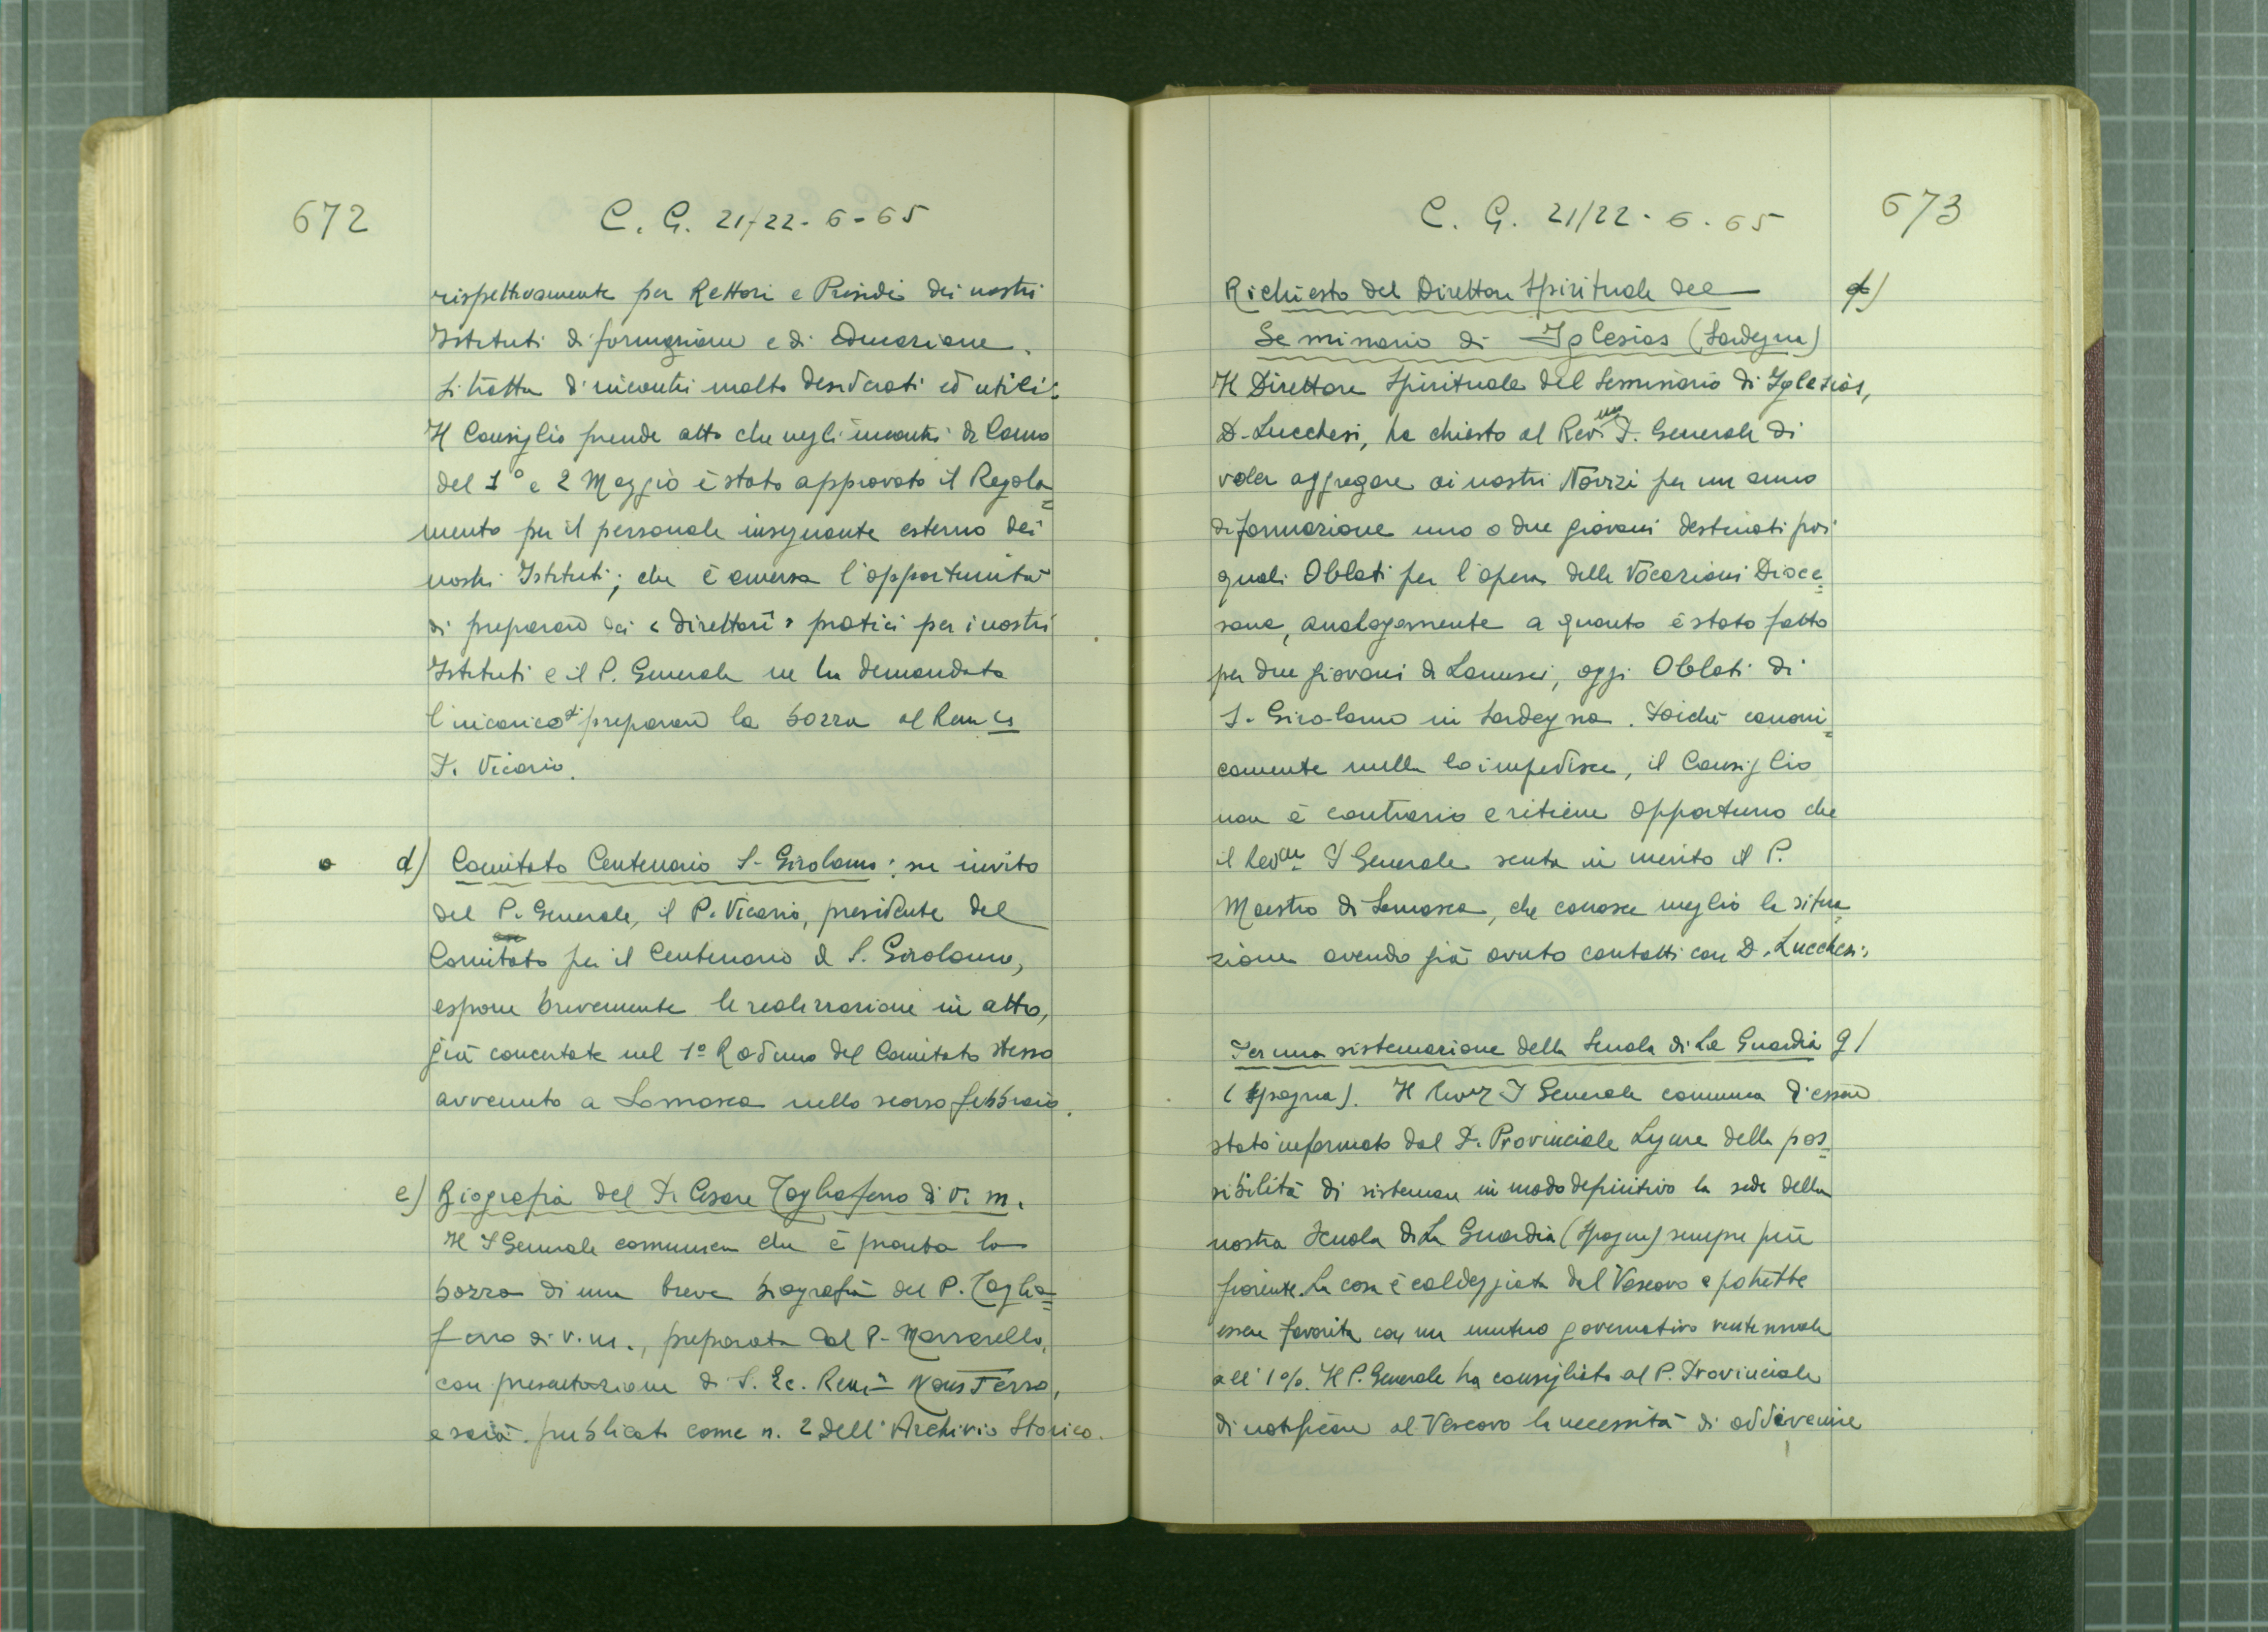 672
C. G. 21/22-6-65
rispettivamente per Rettori e Presidi dei nostri
Istituti di formazione e di educazione.
Si tratta d'incontri molto desiderati ed utili.
Il Consiglio prende atto che negli incontri di Como
del 1° e 2 Maggio è stato approvato il Regola=
mento per il personale insegnante esterno dei
nostri Istituti; che è emersa l'opportunità
di preparare dei "direttori" pratici per i nostri
Istituti e il P. Generale ne ha demandato
l'incarico di preparare la bozza al
P. Vicario.
d) Comitato Centenario S. Girolamo: su invito
del P. Generale, il P. Vicario, presidente del
Comitato per il Centenario di S. Girolamo,
espone brevemente le realizzazioni in atto,
già concertate nel 1° Raduno del Comitato stesso
avvenuto a Somasca nello scorso febbraio.
e) Biografia del P. Cesare Tagliaferro di v. m.
Il P Generale comunica che è pronta la
bozza di una breve biografia del P. Taglia=
ferro di v. m., preparata dal P. Marrarello,
con presentazione di S. Ec. Rev. Mons Ferro,
e sarà pubblicata come n. 2 dell'Archivio Storico.
C. G. 21/22-6-65
673
Richiesta del Direttore Spirituale del
f)
Seminario di Iglesias (Sardegna)
Il Direttore Spirituale del Seminario di Iglesias,
D. Lucchesi, ha chiesto al Rev.mo P. Generale di
voler aggregare ai nostri Novizi per un anno
di formazione uno o due giovani destinati poi
quali Oblati per l'opera delle Vocazioni Dioce=
sane, analogamente a quanto è stato fatto
per due giovani di Lanusei, oggi Oblati di
S. Girolamo in Sardegna. Poichè canoni=
camente nulla lo impedisce, il Consiglio
non è contrario e ritiene opportuno che
il Rev.mo P Generale senta in merito il P.
Maestro di Somasca, che conosce meglio la situa
zione avendo già avuto contatti con D. Lucchesi.
Per una sistemazione della Scuola di La Guardia g/
(Spagna). Il Rev.mo P Generale comunica d'essere
stato informato dal P. Provinciale Ligure della pos=
sibilità di sistemare in modo definitivo la sede della
nostra Scuola di La Guardia (Spagna) sempre più
fiorente. La cosa è caldeggiata dal Vescovo e potrebbe
essere favorita con un mutuo governativo ventennale
all'1%. Il P. Generale ha consigliato al P. Provinciale
di notificare al Vescovo la necessità di addivenire